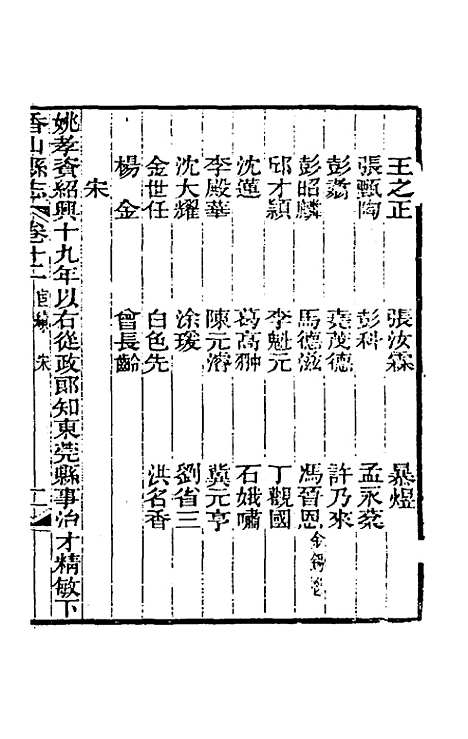 王之正 張汝霖 暴煜
張甄陶 彭科 孟永棻
彭翥 堯茂德 許乃來
彭昭麟 馬德滋 馮晉恩
邱才穎 李魁元 丁觀國
沈蓮 葛高翀 石娥嘯
李殿華 陳元濬 冀元亨
沈大耀 徐瑗 劉省三
金世任 白色先 洪名香
楊金 曾長齡
宋
姚孝資紹興十九年以右從政郎知東莞縣事治才精敏下
香山縣志 卷十二 宦績 宋